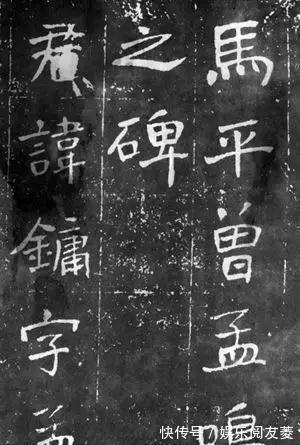 馬平曾孟
之碑
君諱鏞字孟
快传号/娱乐阅友菱